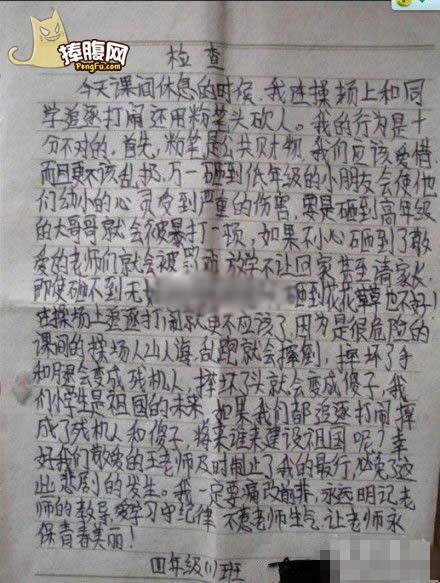 捧腹网
PengFu.com
检查
今天课间休息的时候,我在操场上和同
学追逐打闹还用粉笔头砍人。我的行为是十
分不对的。首先,粉笔是公共财物,我们应该爱惜
而且更不该乱扔,万一砸到低年级的小朋友会使他
们幼小的心灵受到严重的伤害,要是砸到高年级
的大哥哥就会被暴打一顿,如果不小心砸到了敬
爱的老师们就会被罚站,放学不让回家,甚至请家长
即使砸不到无 砸到花花草草也不好!
在操场上追逐打闹就更不应该了,因为是很危险的
课间的操场人山人海,乱跑就会摔倒,摔坏了手
和腿会变成残机人,摔坏了头就会变成傻子,我
们小学生是祖国的未来,如果我们都追逐打闹摔
成了残机人和傻子,将来谁来建设祖国呢?幸
好我们敬爱的王老师及时制止了我的暴行,避免了这
些悲剧的发生。我一定要痛改前非,永远明记老
师的教导,爱学习守纪律,不惹老师生气,让老师永
保青春美丽!
四年级(1)班